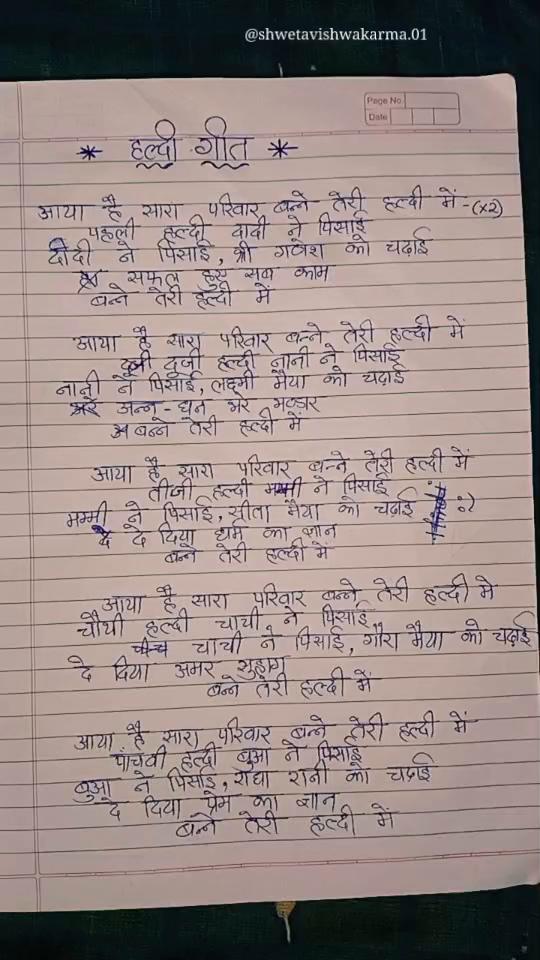 @shwetavishwakarma.01
Page No.
Date
* हल्दी गीत *
आया है सारा परिवार बन्ने तेरी हल्दी में -(x2)
पहली हल्दी दादी ने पिसाई
दादी ने पिसाई, श्री गणेश को चढ़ाई
सफल हुए सब काम
बन्ने तेरी हल्दी में
आया है सारा परिवार बन्ने तेरी हल्दी में
दूजी हल्दी नानी ने पिसाई
नानी ने पिसाई, लक्ष्मी मैया को चढ़ाई
अन्न-धन भरे भण्डार
बन्ने तेरी हल्दी में
आया है सारा परिवार बन्ने तेरी हल्दी में
तीजी हल्दी मम्मी ने पिसाई
मम्मी ने पिसाई, सीता मैया को चढ़ाई :)
दे दिया धर्म का ज्ञान
बन्ने तेरी हल्दी में
आया है सारा परिवार बन्ने तेरी हल्दी मे
चौथी हल्दी चाची ने पिसाई
चाची ने पिसाई, गौरा मैया को चढ़ाई
दे दिया अमर सुहाग
बन्ने तेरी हल्दी में
आया है सारा परिवार बन्ने तेरी हल्दी में
पांचवी हल्दी बुआ ने पिसाई
बुआ ने पिसाई, राधा रानी को चढ़ाई
दे दिया प्रेम का ज्ञान
बन्ने तेरी हल्दी में